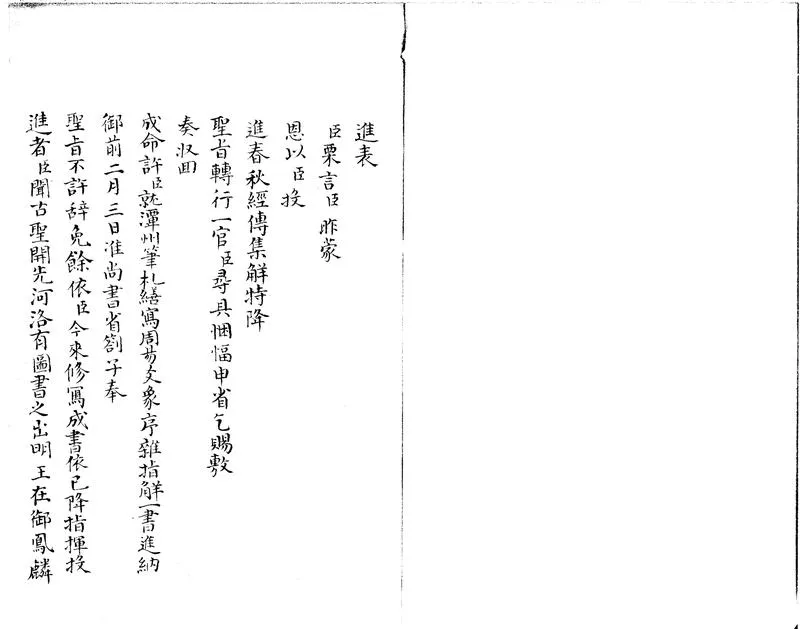 進表
臣栗言臣昨蒙
恩以臣投
進春秋經傳集解特降
聖旨轉行一官臣尋具悃愊申省乞賜敷
奏収回
成命許臣就潭州筆札繕寫周易爻象序雜指觧一書進納
御前二月三日准尚書省劄子奉
聖旨不許辞免餘依臣今來修寫成書依已降指揮投
進者臣聞古聖開先河洛有圖書之出明王在御鳳麟